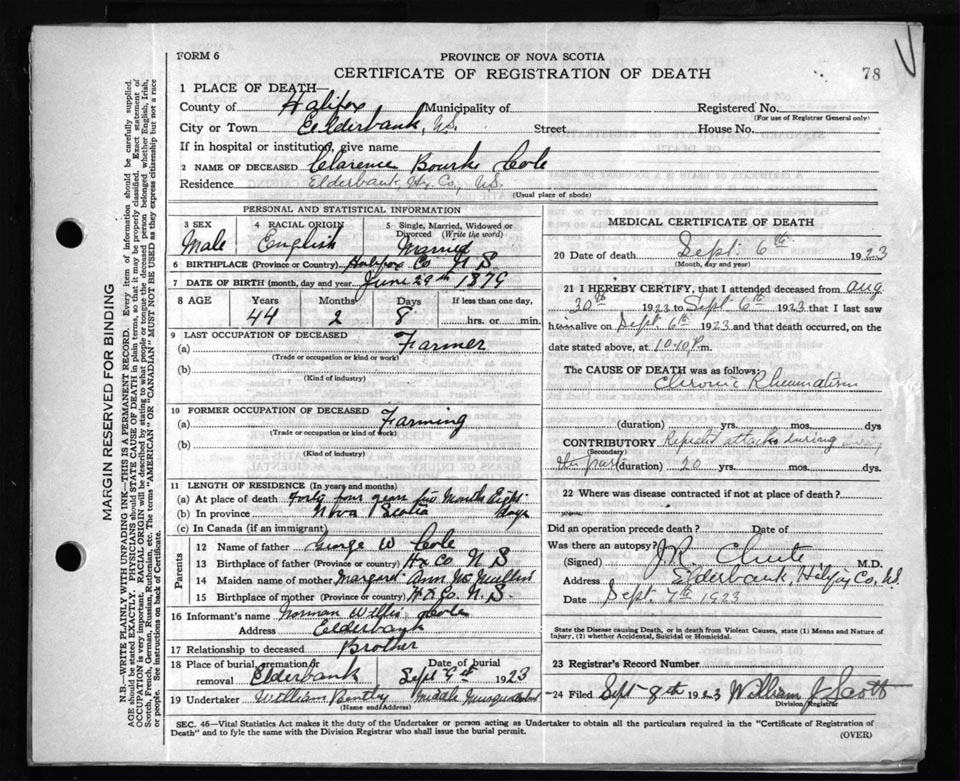 FORM 6
PROVINCE OF NOVA SCOTIA
CERTIFICATE OF REGISTRATION OF DEATH
78
1 PLACE OF DEATH—
County of Halifax Municipality of
Registered No.
(For use of Registrar General only)
City or Town Eelderbank, N.S. Street House No.
If in hospital or institution, give name
2 NAME OF DECEASED Clarence Bourke Cole
Residence Elderbank, Hx. Co., N.S.
(Usual place of abode)
PERSONAL AND STATISTICAL INFORMATION
3 SEX 4 RACIAL ORIGIN 5 Single, Married, Widowed or Divorced (Write the word)
Male English Married
6 BIRTHPLACE (Province or Country) Halifax Co N S
7 DATE OF BIRTH (month, day and year) June 29th 1879
8 AGE Years Months Days If less than one day,
44 2 8 hrs. or min.
9 LAST OCCUPATION OF DECEASED
(a) Farmer
(Trade or occupation or kind or work)
(b)
(Kind of industry)
10 FORMER OCCUPATION OF DECEASED
(a) Farming
(Trade or occupation or kind of work)
(b)
(Kind of industry)
11 LENGTH OF RESIDENCE (In years and months)
(a) At place of death Forty four years Months Eight
(b) In province Nova Scotia days
(c) In Canada (if an immigrant)
Parents
12 Name of father George W Cole
13 Birthplace of father (Province or country) Hx Co N S
14 Maiden name of mother Margaret Ann
15 Birthplace of mother (Province or country) Hx Co. N.S.
16 Informant's name Norman Willis Cole
Address Eelderbank
17 Relationship to deceased Brother
18 Place of burial, cremation or removal Elderbank Date of burial Sept 9th 1923
19 Undertaker William Bently Middle
(Name and Address)
MEDICAL CERTIFICATE OF DEATH
20 Date of death Sept: 6th 1923
(Month, day and year)
21 I HEREBY CERTIFY, that I attended deceased from Aug
20th 1923 to Sept. 6th 1923 that I last saw
him alive on Sept. 6th 1923 and that death occurred, on the
date stated above, at 10.10 P.m.
The CAUSE OF DEATH was as follows:
Chronic Rheumatism
(duration) yrs. mos. days
CONTRIBUTORY Repeated attacks during
(Secondary)
the past (duration) 20 yrs. mos. dys.
22 Where was disease contracted if not at place of death?
Did an operation precede death? Date of
Was there an autopsy?
(Signed) J.R. Chute M.D.
Address Elderbank, Co, N.S.
Date Sept. 7th 1923
State the Disease causing Death, or in death from Violent Causes, state (1) Means and Nature of
Injury, (2) whether Accidental, Suicidal or Homicidal.
23 Registrar's Record Number
24 Filed Sept 8th 1923 William J Scott
Division Registrar
SEC. 46—Vital Statistics Act makes it the duty of the Undertaker or person acting as Undertaker to obtain all the particulars required in the "Certificate of Registration of
Death" and to fyle the same with the Division Registrar who shall issue the burial permit.
(OVER)
MARGIN RESERVED FOR BINDING
N.B.—WRITE PLAINLY WITH UNFADING INK—THIS IS A PERMANENT RECORD. Every item of information should be carefully supplied.
AGE should be stated EXACTLY. PHYSICIANS should STATE CAUSE OF DEATH in plain terms, so that it may be properly classified. Exact statement of
OCCUPATION is very important. RACIAL ORIGIN will be described by stating to what people or tongue the deceased person belonged whether English, Irish,
Scotch, French, German, Russian, Ruthenian, etc. The terms "AMERICAN" OR "CANADIAN" MUST NOT BE USED as they express citizenship but not a race
or people. See instructions on back of Certificate.